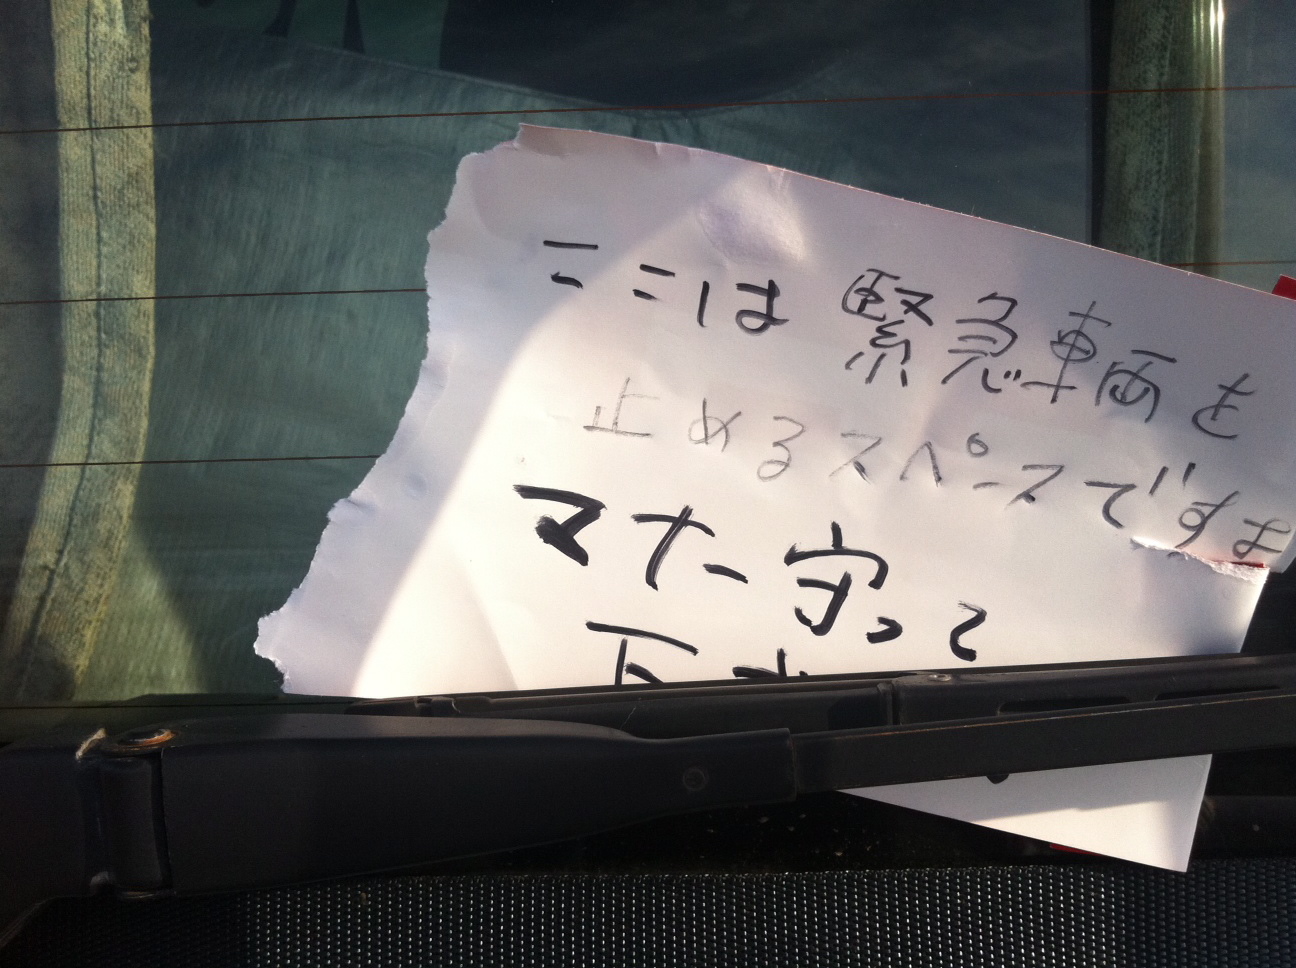 ここは緊急車両を
止めるスペースですよ
マナー守って
下さ